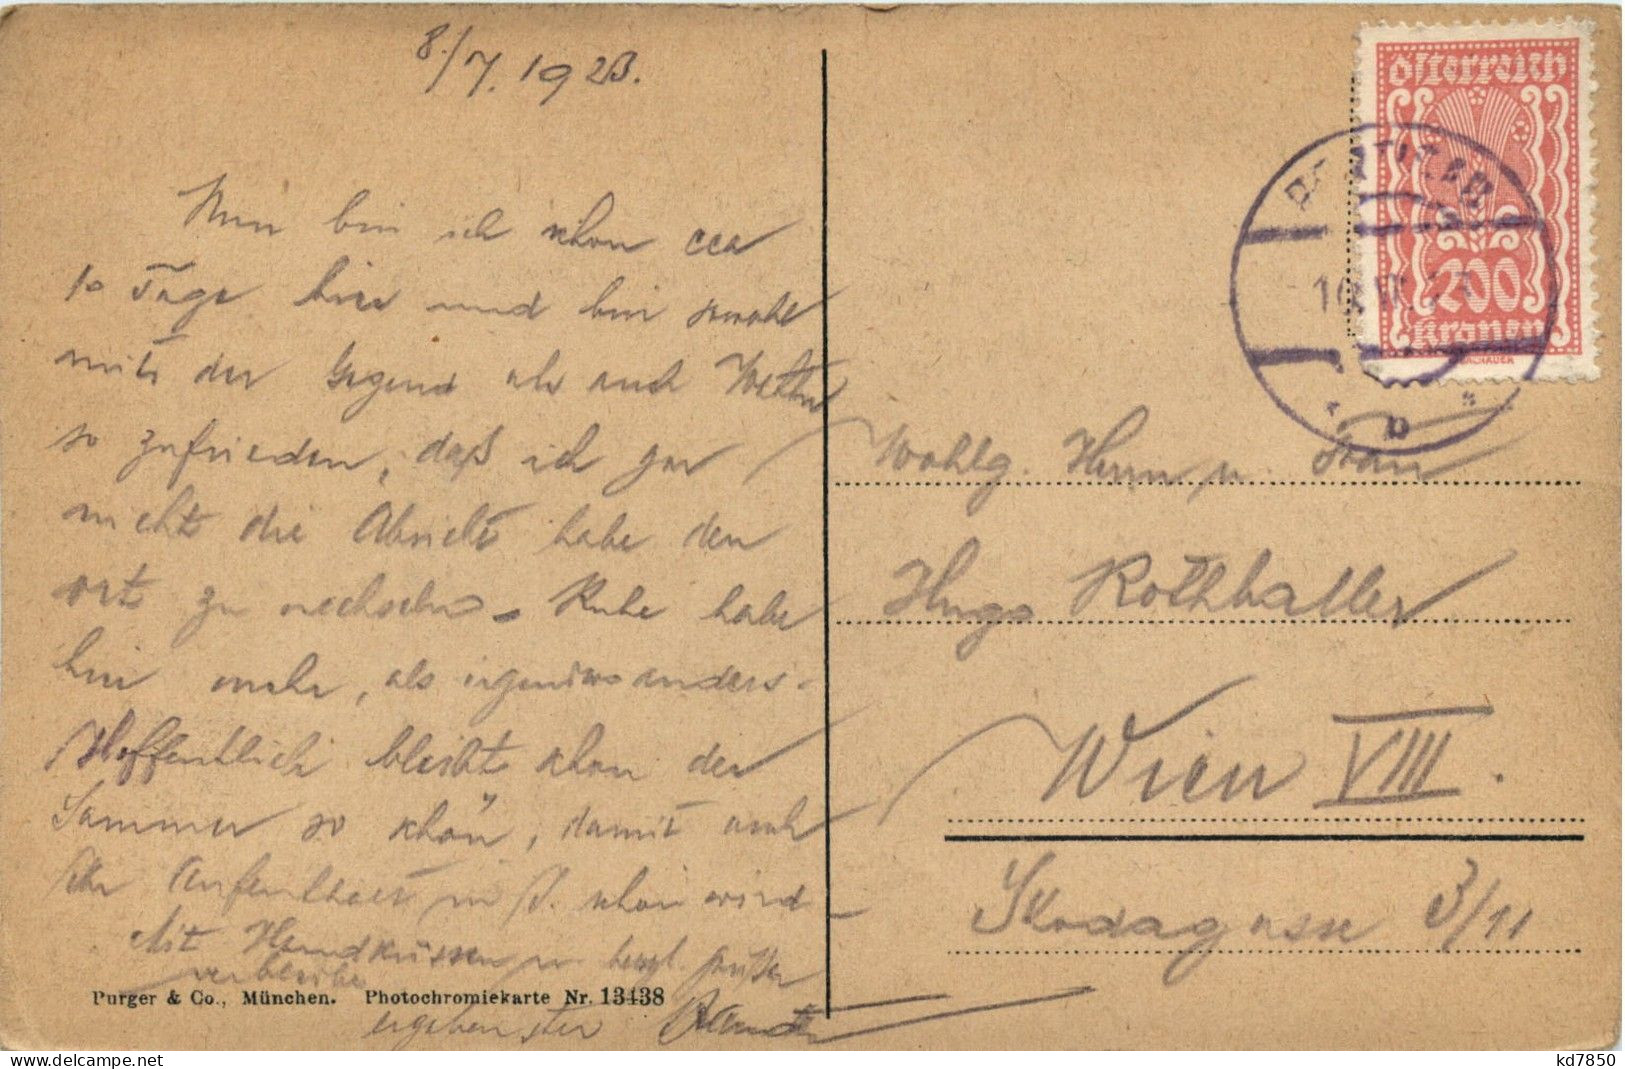 8./7. 1923.
Nun bin ich schon cca
10 Tage hier und bin sowohl
mit der Gegend als auch Wetter
so zufrieden, daß ich gar
nicht die Absicht habe den
Ort zu wechseln. Ruhe habe
hier mehr, als irgendwo anders.
Hoffentlich bleibt schon der
Sommer so schön, damit auch
Ihr Aufenthalt in schön wird
Mit Handküssen u. herzl. Grüßen
verbleibe
ergebenster
Purger & Co., München. Photochromiekarte Nr. 13438
Österreich
200
Kronen
Wohlg. Herrn u. Frau
Hugo Rothballer
Wien VIII.
Skodagasse 3/11
kd7850